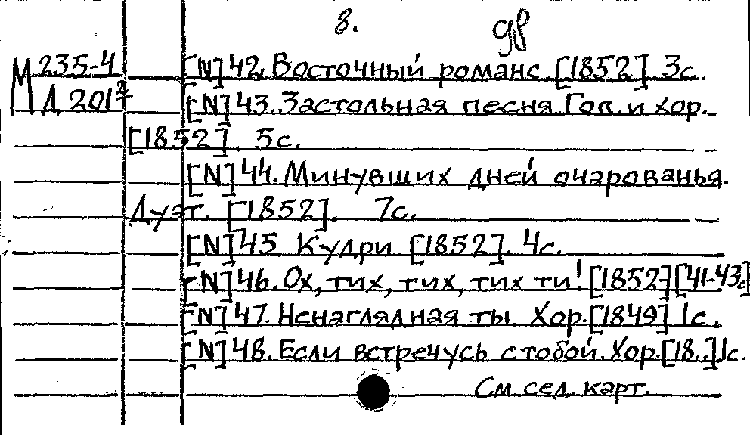 8. др
М 235-4 [N] 42. Восточный романс. [1852]. 3с.
Д 201² [N] 43. Застольная песня. Гол. и хор.
[1852]. 5с.
[N] 44. Минувших дней очарованья.
Дуэт. [1852]. 7с.
[N] 45 Кудри [1852]. 4с.
[N] 46. Ох, тих, тих, тих ти! [1852] [41-43с]
[N] 47. Ненаглядная ты. Хор. [1849] 1с.
[N] 48. Если встречусь с тобой. Хор. [18..] 1с.
См. след. карт.